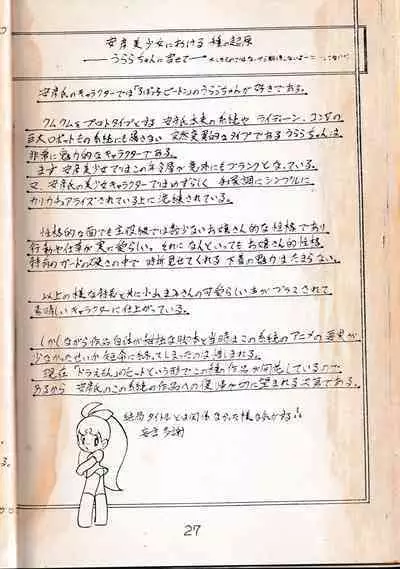 安彦美少女における種の起原
――うららちゃんに寄せて――
安彦氏のキャラクターでは「ろぼっ子ビートン」のうららちゃんが好きである。
クムクムをプロトタイプとする安彦氏本来の系統や ライディーン、コンVの
巨大ロボットもの系統にも属さない 突然変異的なタイプであるうららちゃんは
非常に魅力的なキャラクターである。
まず 安彦美少女ではこの年令層が意外にもブランクとなっている。
又、安彦氏の美少女キャラクターではめずらしく シンプルに
カリカチュアライズされている上に洗練されている。
性格的な面でも主役級では数少ないお嬢さん的な性格であり
行動や仕草が実に愛らしい。それになんといってもお嬢さん的性格
特有のガードの硬さの中で 時折見せてくれる下着の魅力はたまらない。
以上の様な特長と共に小山まみさんの可愛らしい声がプラスされて
素晴しいキャラクターに仕上がっている。
しかしながら作品自体が な脚本と当時はこの系統のアニメの要求が
少なかったせいか短命に終ってしまったのは惜しまれる。
現在「ドラえもん」のヒットという形でこの種の作品が
あるから 安彦氏のこの系統の作品への復活が切に望まれる次第である。
結局タイトルとは関係なかった様な気がする。
妄言多謝
27